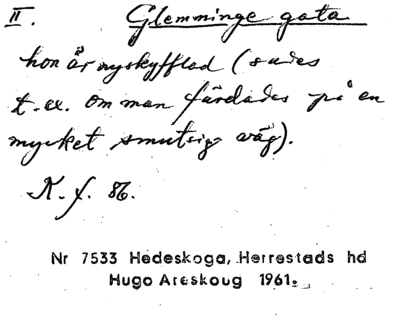 II. Glemminge gata
hon är nyskyfflad (sades
t.ex. om man färdades på en
mycket smutsig väg).
K. f. 86.
Nr 7533 Hedeskoga, Herrestads hd
Hugo Areskoug 1961.